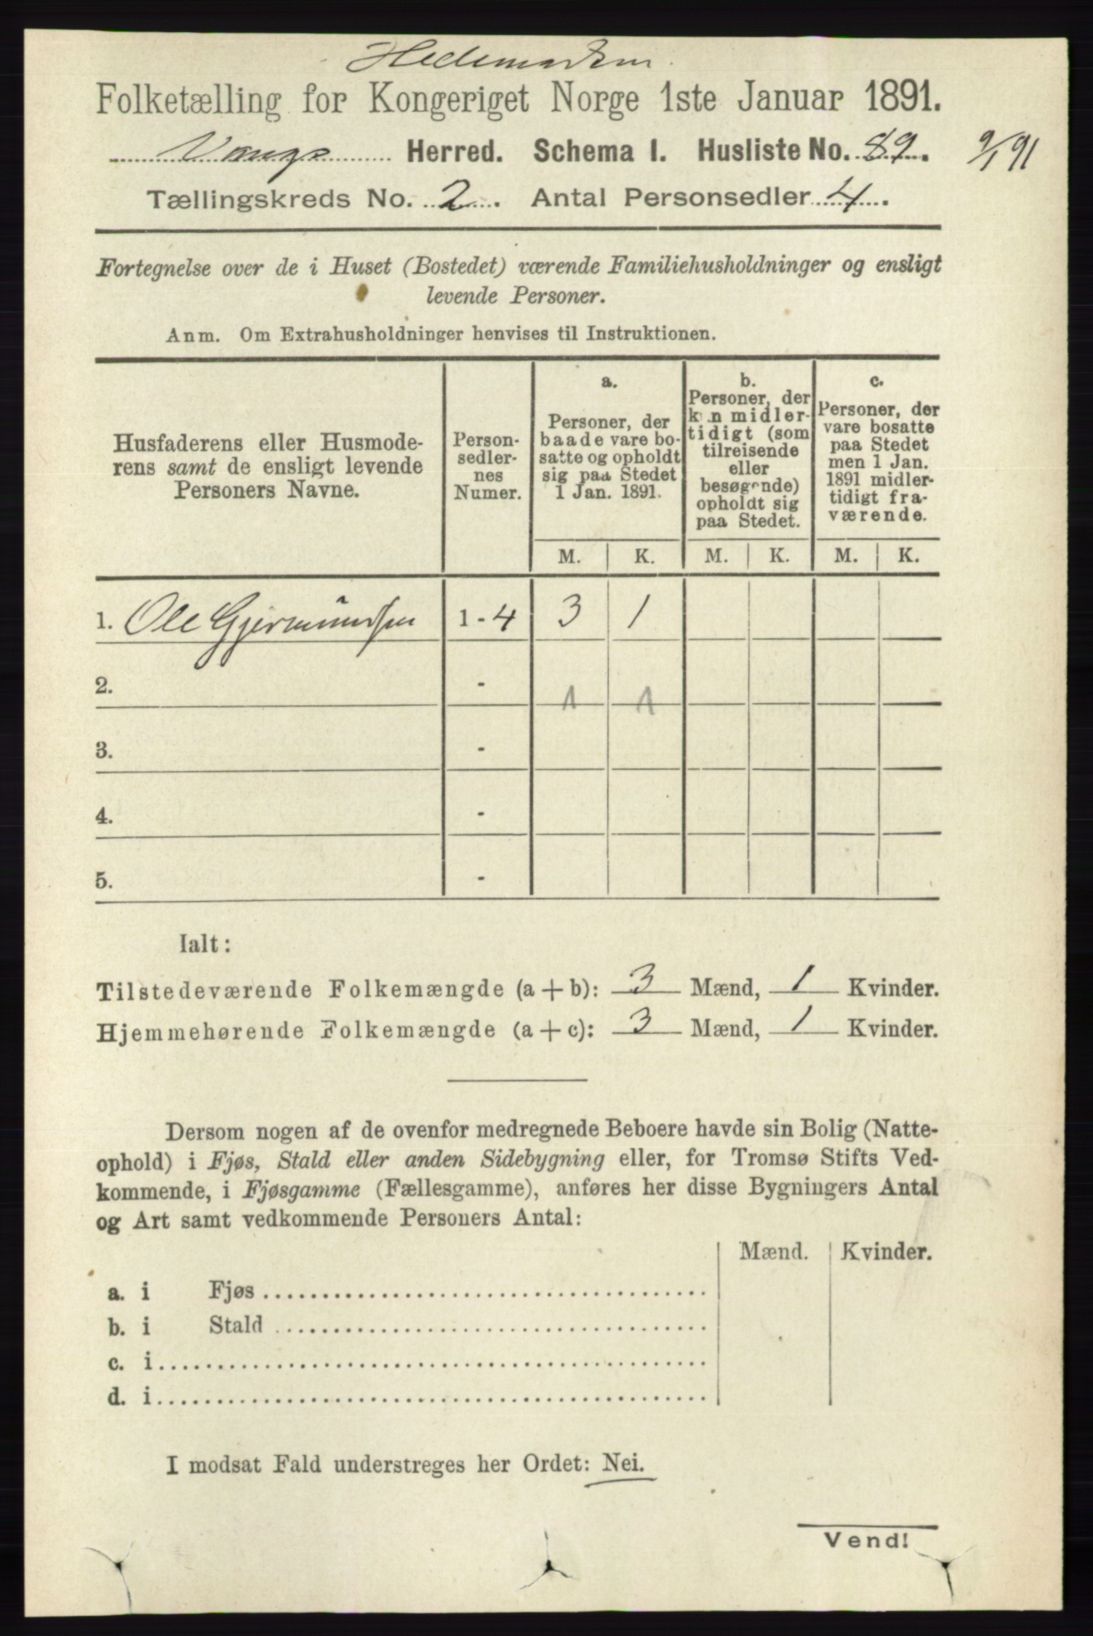 Hedemarken.
Folketælling for Kongeriget Norge 1ste Januar 1891.
Vangs Herred. Schema I. Husliste No. 89. 9/1 91
Tællingskreds No. 2. Antal Personsedler 4.
Fortegnelse over de i Huset (Bostedet) værende Familiehusholdninger og ensligt
levende Personer.
Anm. Om Extrahusholdninger henvises til Instruktionen.
Husfaderens eller Husmode-
rens samt de ensligt levende
Personers Navne.
Person-
sedler-
nes
Numer.
a.
Personer, der
baade vare bo-
satte og opholdt
sig paa Stedet
1 Jan. 1891.
b.
Personer, der
kun midler-
tidigt (som
tilreisende
eller
besøgende)
opholdt sig
paa Stedet.
c.
Personer, der
vare bosatte
paa Stedet
men 1 Jan.
1891 midler-
tidigt fra-
værende.
M. K. M. K. M. K.
1. Ole Gjermundsen 1 - 4 3 1
2. - 1 1
3. -
4. -
5. -
Ialt:
Tilstedeværende Folkemængde (a + b): 3 Mænd, 1 Kvinder.
Hjemmehørende Folkemængde (a + c): 3 Mænd, 1 Kvinder.
Dersom nogen af de ovenfor medregnede Beboere havde sin Bolig (Natte-
ophold) i Fjøs, Stald eller anden Sidebygning eller, for Tromsø Stifts Ved-
kommende, i Fjøsgamme (Fællesgamme), anføres her disse Bygningers Antal
og Art samt vedkommende Personers Antal:
Mænd. Kvinder.
a. i Fjøs
b. i Stald
c. i
d. i
I modsat Fald understreges her Ordet: Nei.
Vend!